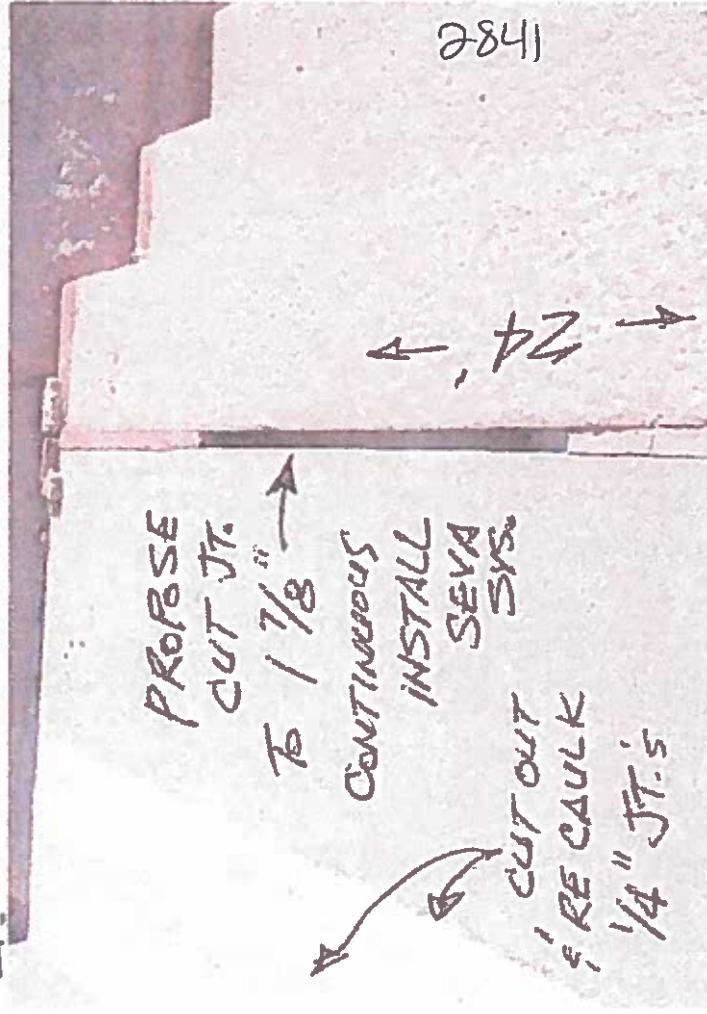 2841
24'
PROPOSE
CUT JT.
TO 1 7/8"
CONTINUOUS
INSTALL
SEVA
SYS.
CUT OUT
& RE CAULK
1/4" JT.'S